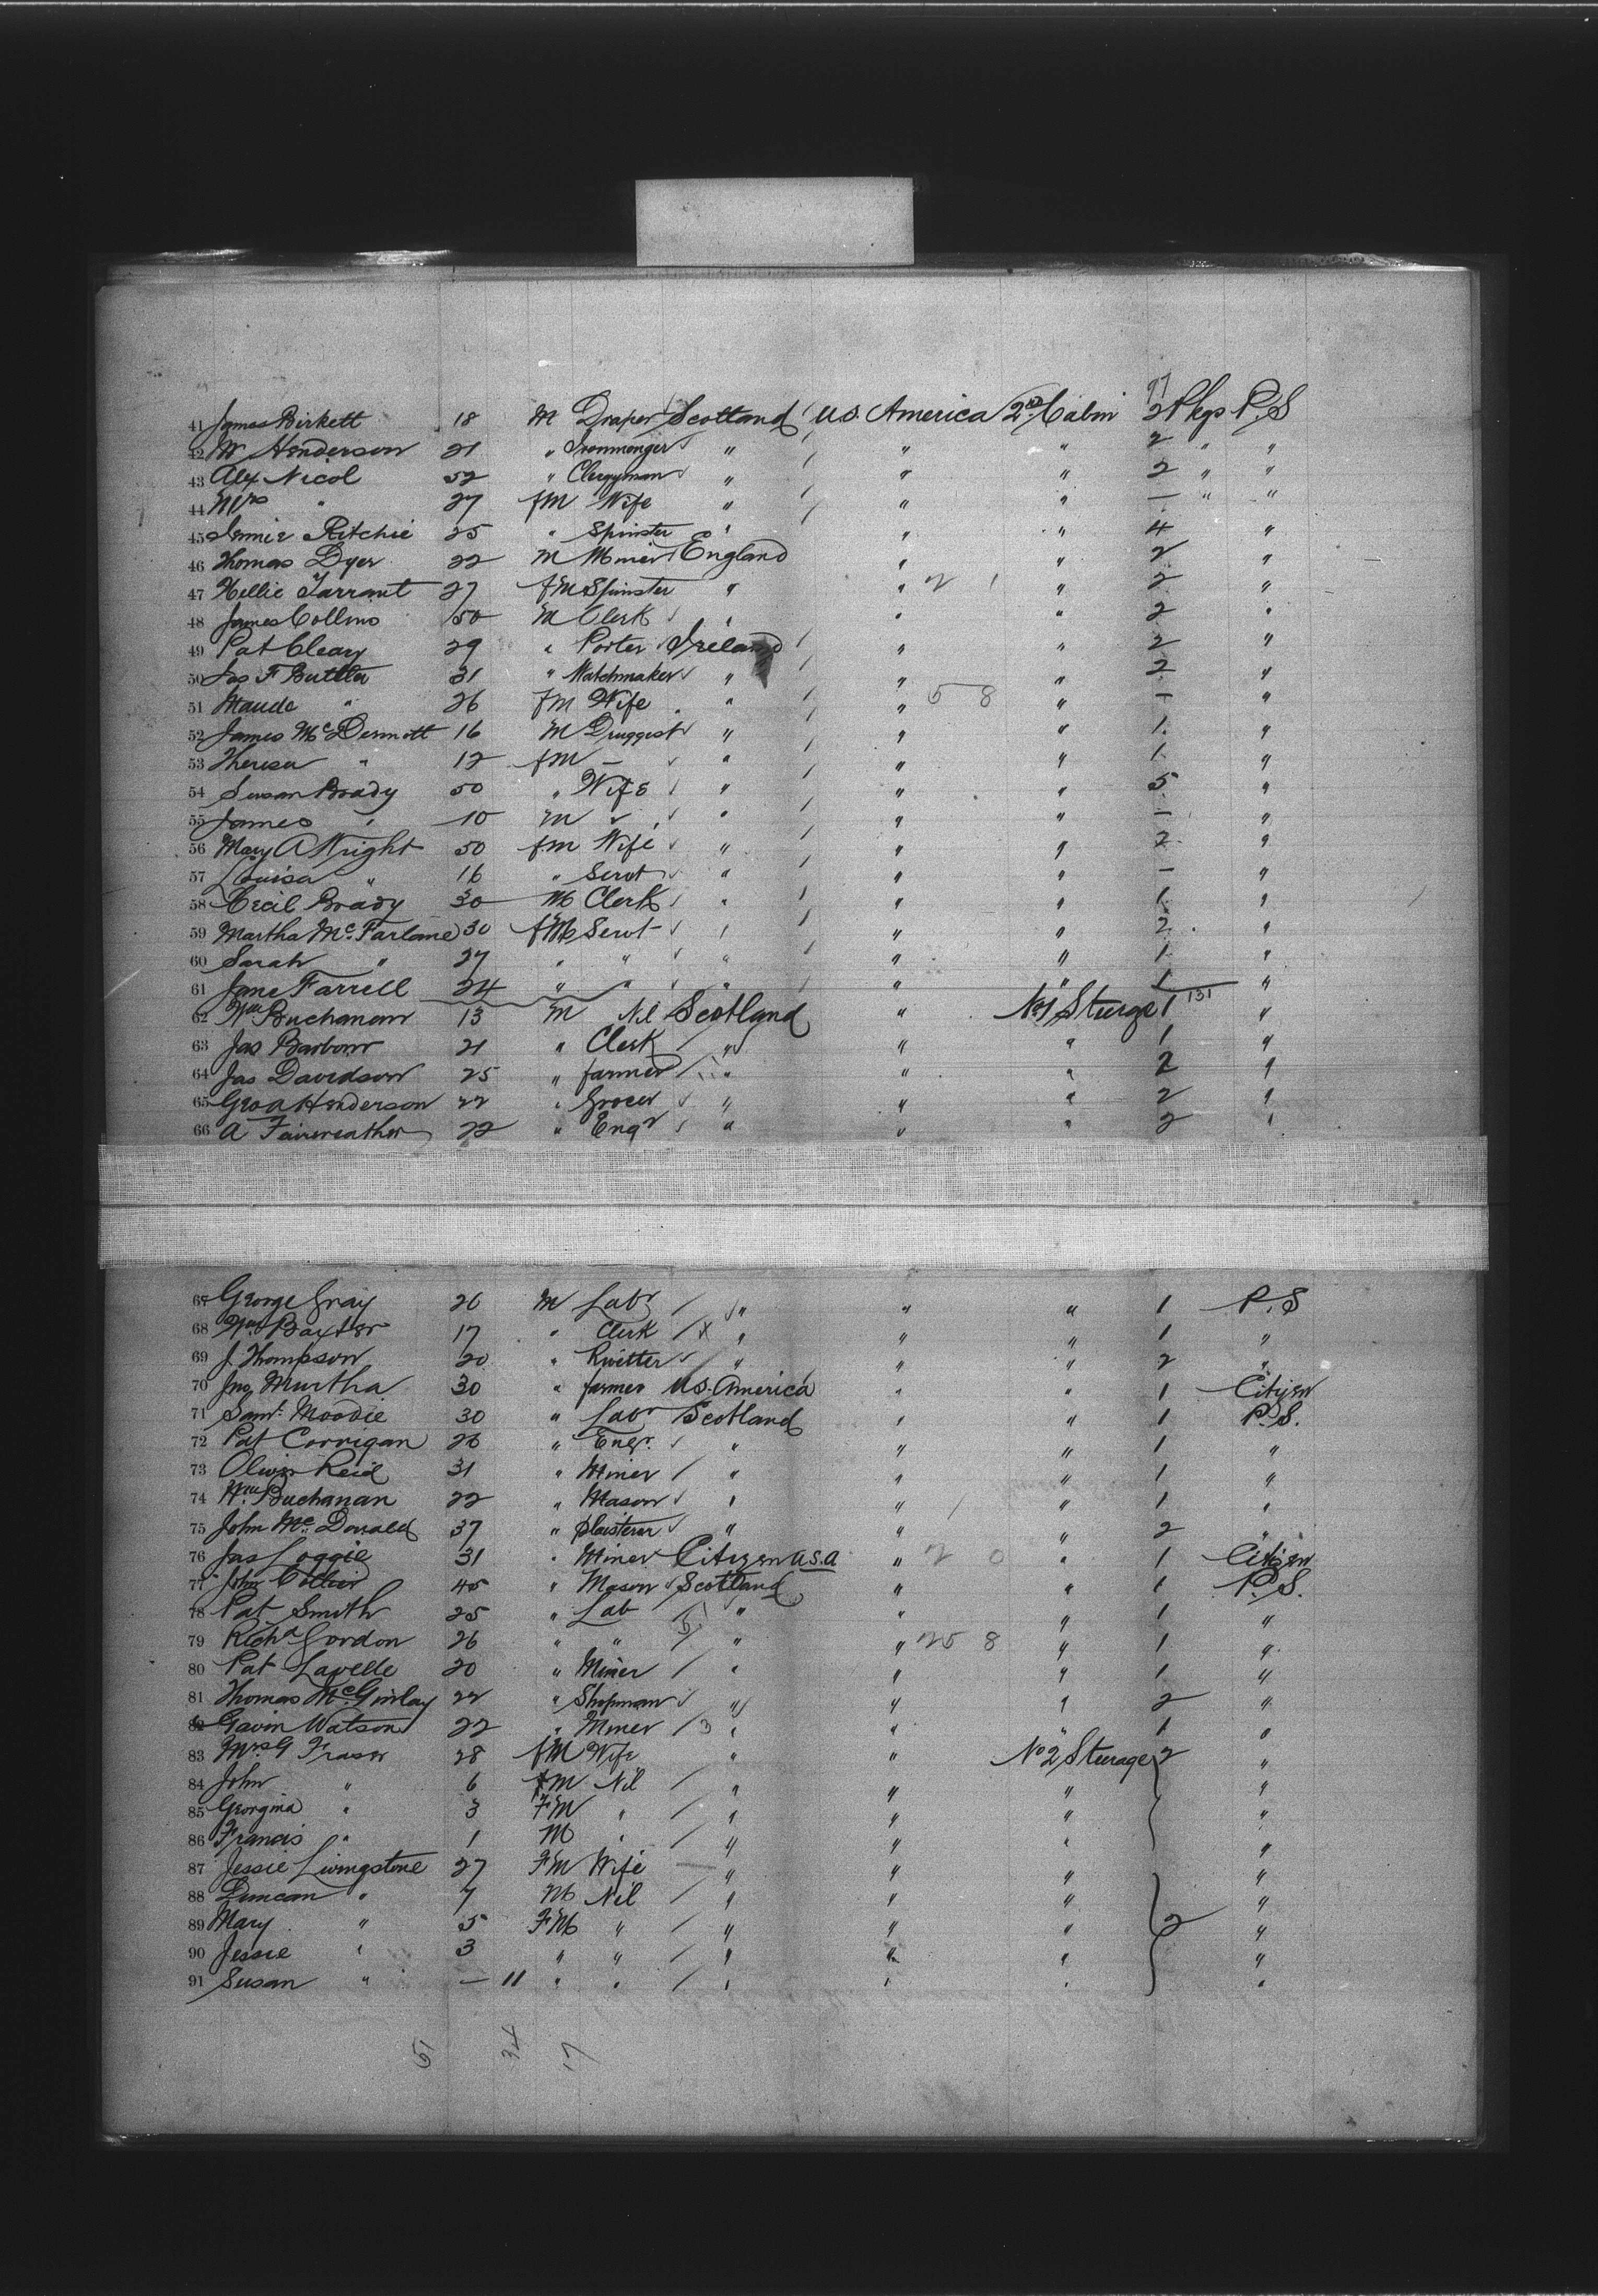 97
41 James Birkett 18 M Draper Scotland U.S. America 2nd Cabin 2 Pkgs P.S
42 W Henderson 21 " Ironmonger " " " 2 " "
43 Alex Nicol 52 " Clergyman " " " 2 " "
44 Mrs " 27 fM Wife " " " — " "
45 Jennie Ritchie 25 " Spinster " " " 4 "
46 Thomas Dyer 22 M Miner England " " 2 "
47 Nellie Tarrant 27 fM Spinster " " 2 1 " 2 "
48 James Collins 50 M Clerk " " " 2 "
49 Pat Cleary 29 " Porter Ireland " " 2 "
50 Jas F Buttler 31 " Watchmaker " " " 2 "
51 Maude " 26 fM Wife " " 5 8 " — "
52 James McDermott 16 M Druggist " " " 1 "
53 Theresa " 12 fM — " " " 1 "
54 Susan Brady 50 " Wife " " " 5 "
55 James " 10 M " " " — "
56 Mary A Wright 50 fm Wife " " " 2 "
57 Louisa " 16 " Servt " " " — "
58 Cecil Brady 30 M Clerk " " " 1 "
59 Martha McFarlane 30 fM Servt " " " 2 "
60 Sarah " 27 " " " " " 1 "
61 Jane Farrell 24 " " " " " 1 "
62 Wm Buchanan 13 M Nil Scotland " No 1 Sturge 1 131 "
63 Jas Barbour 21 " Clerk " " " 1 "
64 Jas Davidson 25 " farmer " " " 2 "
65 Geo A Henderson 22 " Grocer " " " 2 "
66 A Fairweather 22 " Engr " " " 2 "
67 George Gray 26 M Labr " " " 1 P.S
68 Wm Baxter 17 " Clerk X " " " 1 "
69 J. Thompson 20 " Rivitter " " " 2 "
70 Jno Murtha 30 " farmer U.S. America " " 1 Citizen
71 Saml Moodie 30 " Labr Scotland " " 1 P.S.
72 Pat Corrigan 26 " Engr. " " " 1 "
73 Oliver Reid 31 " Miner " " " 1 "
74 Wm Buchanan 22 " Mason " " " 1 "
75 John McDonald 37 " plaisterer " " " 2 "
76 Jas Loggie 31 " Miner Citizen U.S.A " 2 0 " 1 Citizen
77 John Collier 45 " Mason Scotland " " 1 P.S.
78 Pat Smith 25 " Lab " " " 1 "
79 Richd Gordon 26 " " " " 25 8 " 1 "
80 Pat Lavelle 20 " Miner " " " 1 "
81 Thomas McGinlay 22 " Shopman " " " 2 "
82 Gavin Watson 22 " Miner 3 " " " 1 "
83 Mrs G Fraser 28 fM Wife " " No 2 Steerage 2 "
84 John " 6 fM Nil " " " "
85 Georgina " 3 FM " " " " "
86 Francis " 1 M " " " " "
87 Jessie Livingstone 27 FM Wife " " " "
88 Duncan " 7 M Nil " " " "
89 Mary " 5 FM " " " " 2 "
90 Jessie " 3 " " " " " "
91 Susan " — 11 " " " " " "
51 34 17